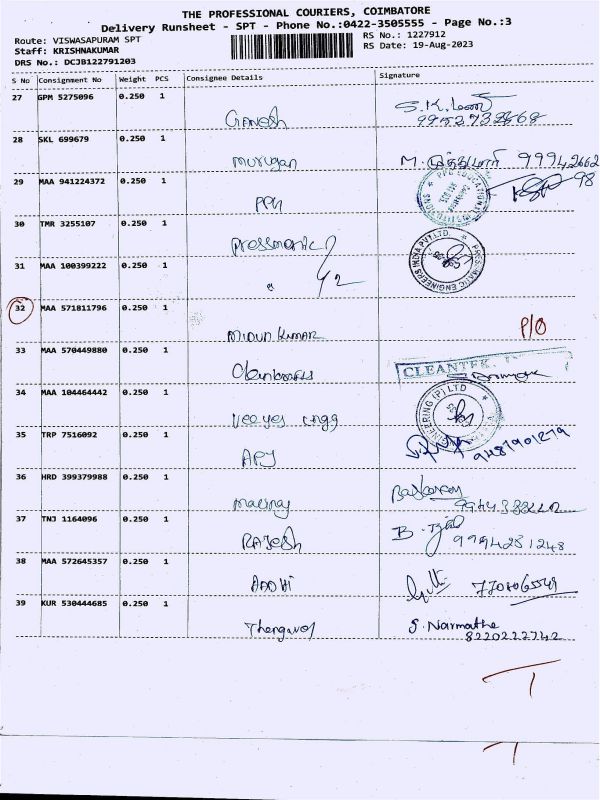 THE PROFESSIONAL COURIERS, COIMBATORE
Delivery Runsheet - SPT - Phone No.:0422-3505555 - Page No.:3
Route: VISWASAPURAM SPT
RS No.: 1227912
Staff: KRISHNAKUMAR
RS Date: 19-Aug-2023
DRS No.: DCJB122791203
S No Consignment No Weight PCS Consignee Details Signature
27 GPM 5275096 0.250 1
GANESH
28 SKL 699679 0.250 1
murugan
29 MAA 941224372 0.250 1
PPG
30 TMR 3255107 0.250 1
Pressmatic
31 MAA 100399222 0.250 1
32 MAA 571811796 0.250 1
P/O
MIDUN KUMAR
33 MAA 570449880 0.250 1
CLEANTEK
34 MAA 104464442 0.250 1
Veeyes engg
35 TRP 7516092 0.250 1
APJ
9487901279
36 HRD 399379988 0.250 1
Baskaran
37 TNJ 1164096 0.250 1
RAJESH
9994231248
38 MAA 572645357 0.250 1
AADHI
39 KUR 530444685 0.250 1
S. Narmatha
8220222742